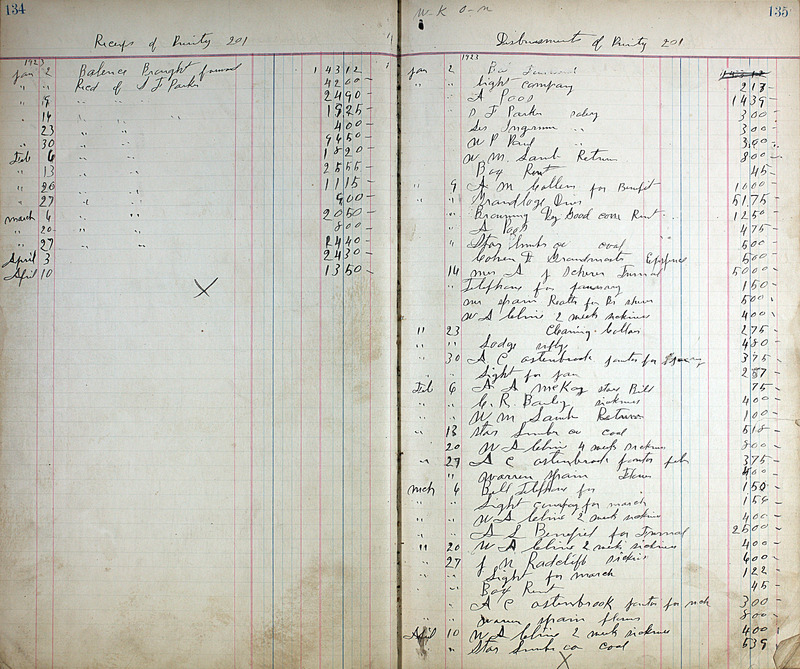 134
Receipts of Purity 201
1923
Jan 2 Balance Brought forward 143 12
" " Recd of J F Parks 42 60
" 9 " " 24 90
" 14 " " 19 25
" 23 " " 4 00
" 30 " " 94 50
Feb 6 " " 18 20
" 13 " " 25 55
" 20 " " 11 15
" 27 " " 9 00
March 6 " " 20 50
" 20 " " 8 00
" 27 " " 24 40
April 3 24 30
April 10 13 50
X
W-K O-N
135
Disbursments of Purity 201
1923
Jan 2
" " Light company 2 13
" A Poos 14 39
" J F Parks salary 3 00
" Ingram " 3 00
" W P Paul " 3 00
" W M. Lamb Return 8 00
Box Rent 45
" 9 A M Collins for Benefit 10 00
" " Grandloge Dues 51 75
" Browning Dry Good core Rent 12 50
" A Poos 4 75
" Star Lumber co coal 5 00
Grandmasters 5 00
14 mrs A J Funeral 50 00
" Telephone for january 1 50
mr spain 5 00
W A Cline 2 weeks sickness 4 00
" 23 Cleaning 2 75
" " Lodge 4 80
" 30 A C astenbrook 3 75
" Light for jan 2 87
Feb 6 A A McKay stove Bill 75
" " C. R. Baily sickness 4 00
" " W M Lamb Return 1 00
" 13 Star Lumber co coal 5 18
20 W A Cline 4 weeks sickness 8 00
" 27 A C astenbrook feb 3 75
" warren spain 4 00
Mch 6 Bell Telephone for 1 50
" " Light company for march 1 54
" " W A Cline 2 weeks sickness 4 00
" " A L Benefiel for Funeral 25 00
" 20 W A Cline 2 weeks sickness 4 00
" 27 J N Radcliff sickness 6 00
" Light for march 1 22
" Box Rent 45
" A C astenbrook for mch 3 00
" warren spain flowers 8 00
April 10 W A Cline 2 weeks sickness 4 00
" Star Lumber co coal 5 39
X